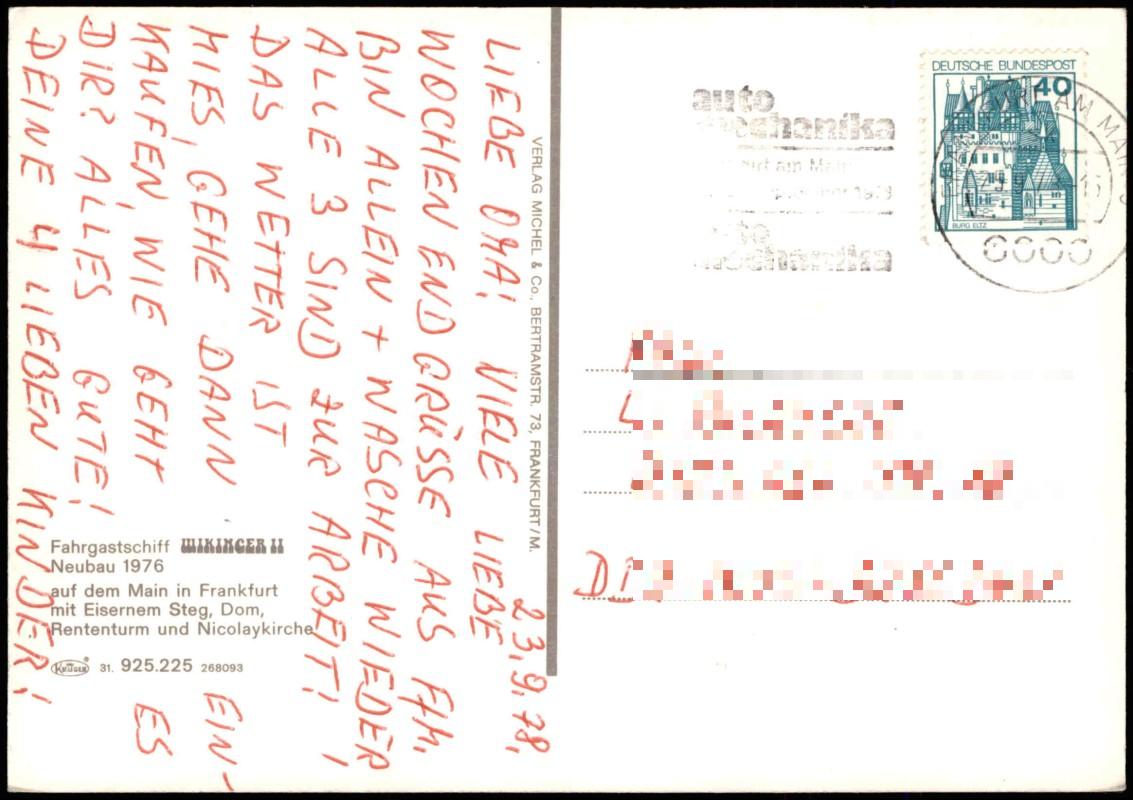 23.9.78.
LIEBE OMA! VIELE LIEBE
WOCHENENDGRÜSSE AUS FFM.
BIN ALLEIN + WASCHE WIEDER!
ALLE 3 SIND ZUR ARBEIT!
DAS WETTER IST
MIES, GEHE DANN EIN-
KAUFEN, WIE GEHT ES
DIR? ALLES GUTE!
DEINE 4 LIEBEN KINDER!
VERLAG MICHEL & Co., BERTRAMSTR. 73, FRANKFURT/M.
Fahrgastschiff WIKINGER II
Neubau 1976
auf dem Main in Frankfurt
mit Eisernem Steg, Dom,
Rententurm und Nicolaykirche
KRÜGER 31. 925.225 268093
auto
mechanika
am Main
auto
mechanika
DEUTSCHE BUNDESPOST
40
BURG ELTZ
AM MAIN
6000